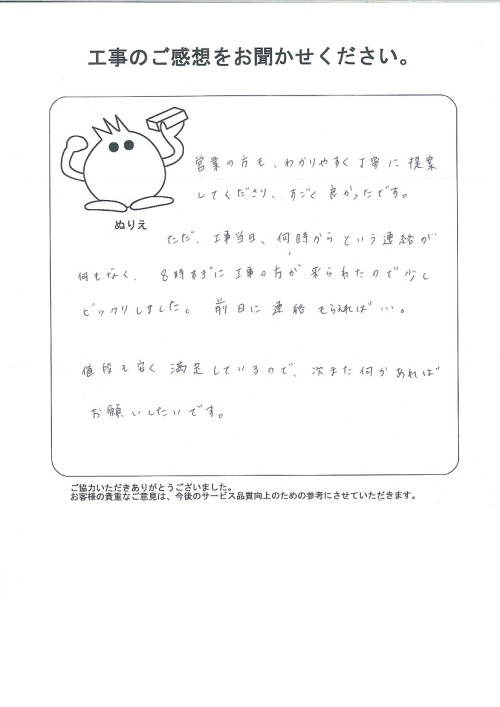 工事のご感想をお聞かせください。
ぬりえ
営業の方も、わかりやすく丁寧に提案
してくださり、すごく良かったです。
ただ、工事当日、何時からという連絡が
何もなく、8時すぎに工事の方が来られたので少し
ビックリしました。前日に連絡もらえれば…。
値段も安く満足しているので、次また何かあれば
お願いしたいです。
ご協力いただきありがとうございました。
お客様の貴重なご意見は、今後のサービス品質向上のための参考にさせていただきます。